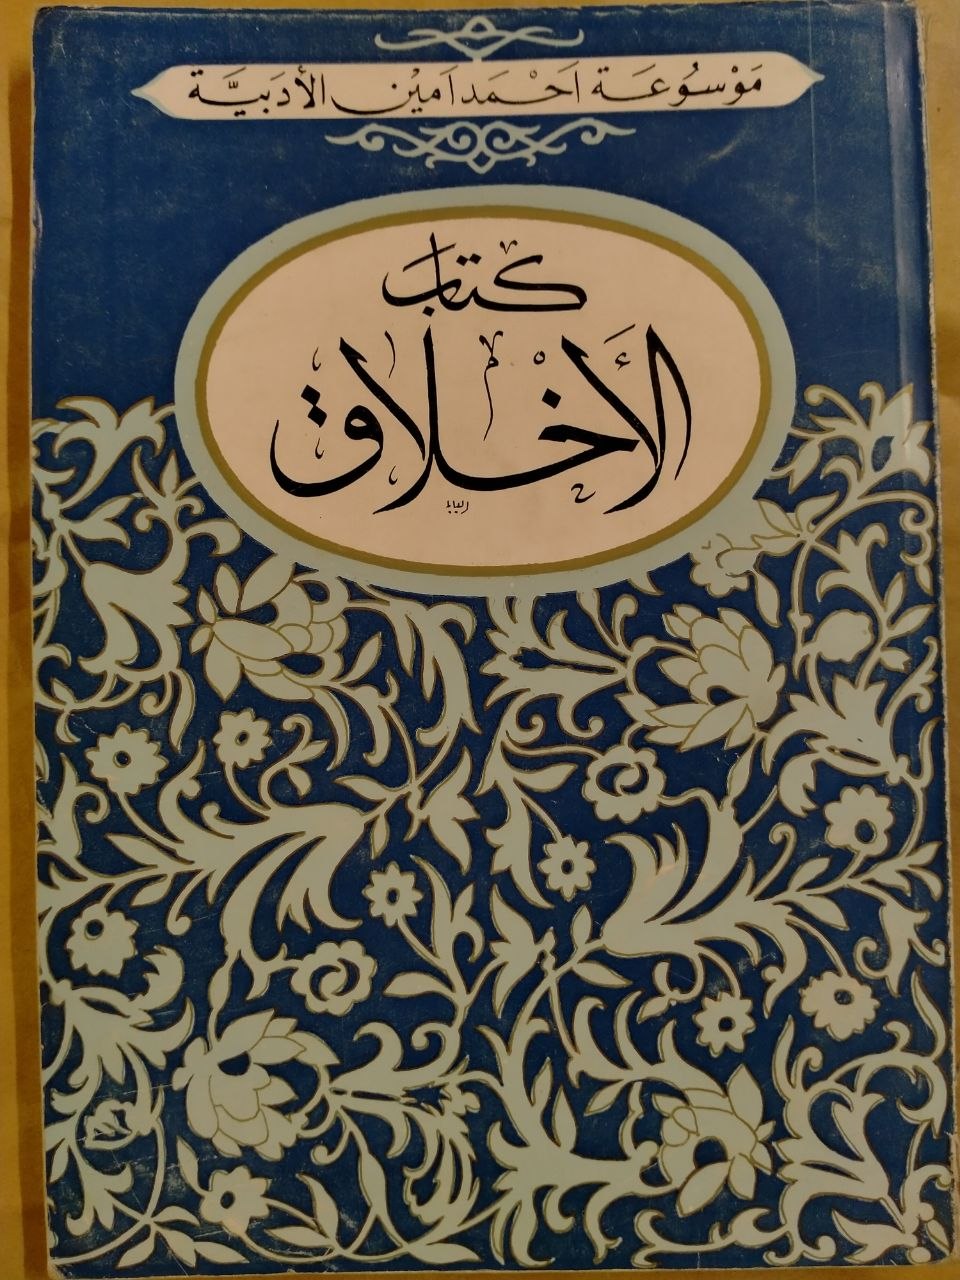 مَوْسُوعَة اَحْمَد اَمِيْن الأَدَبيَّة
كتاب
الأَخْلاق